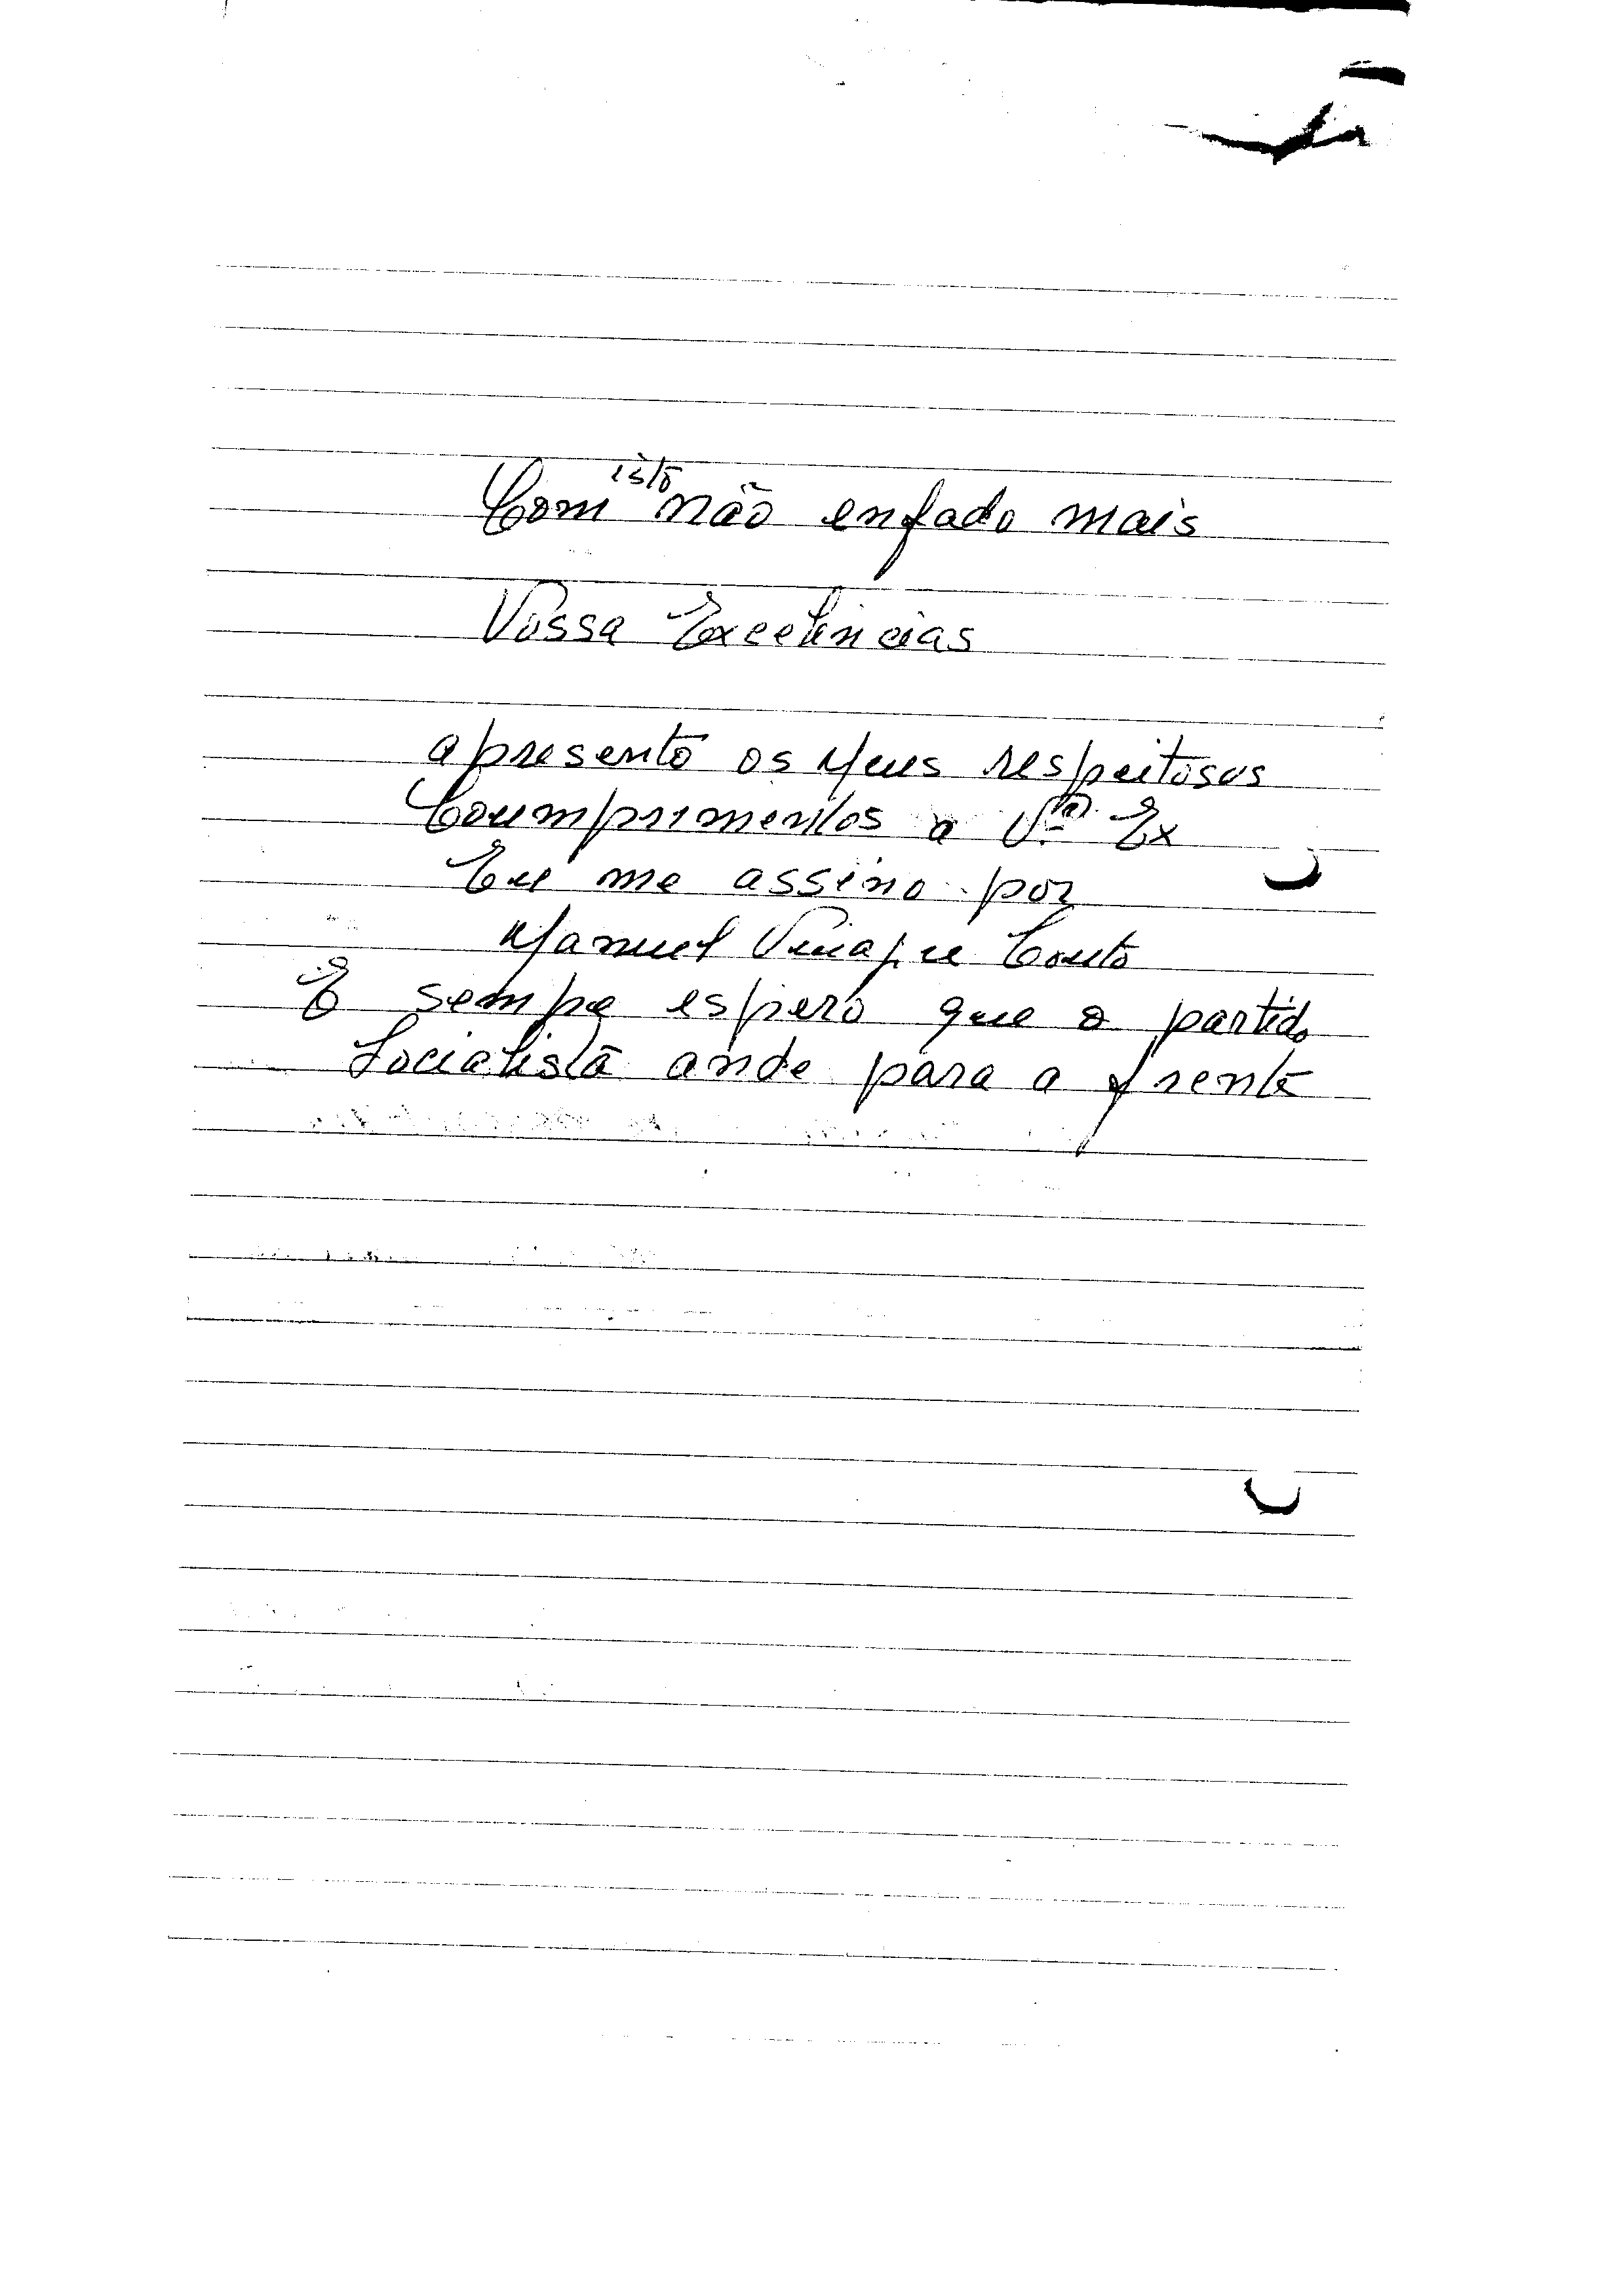 Com isto não enfado mais
Vossa Excelências
apresento os Meus respeitosos
Coumprimentos a V.ª Ex
Eu me assino por
Manuel Vinagre Couto
E sempe espero que o partido
Socialista ande para a frente